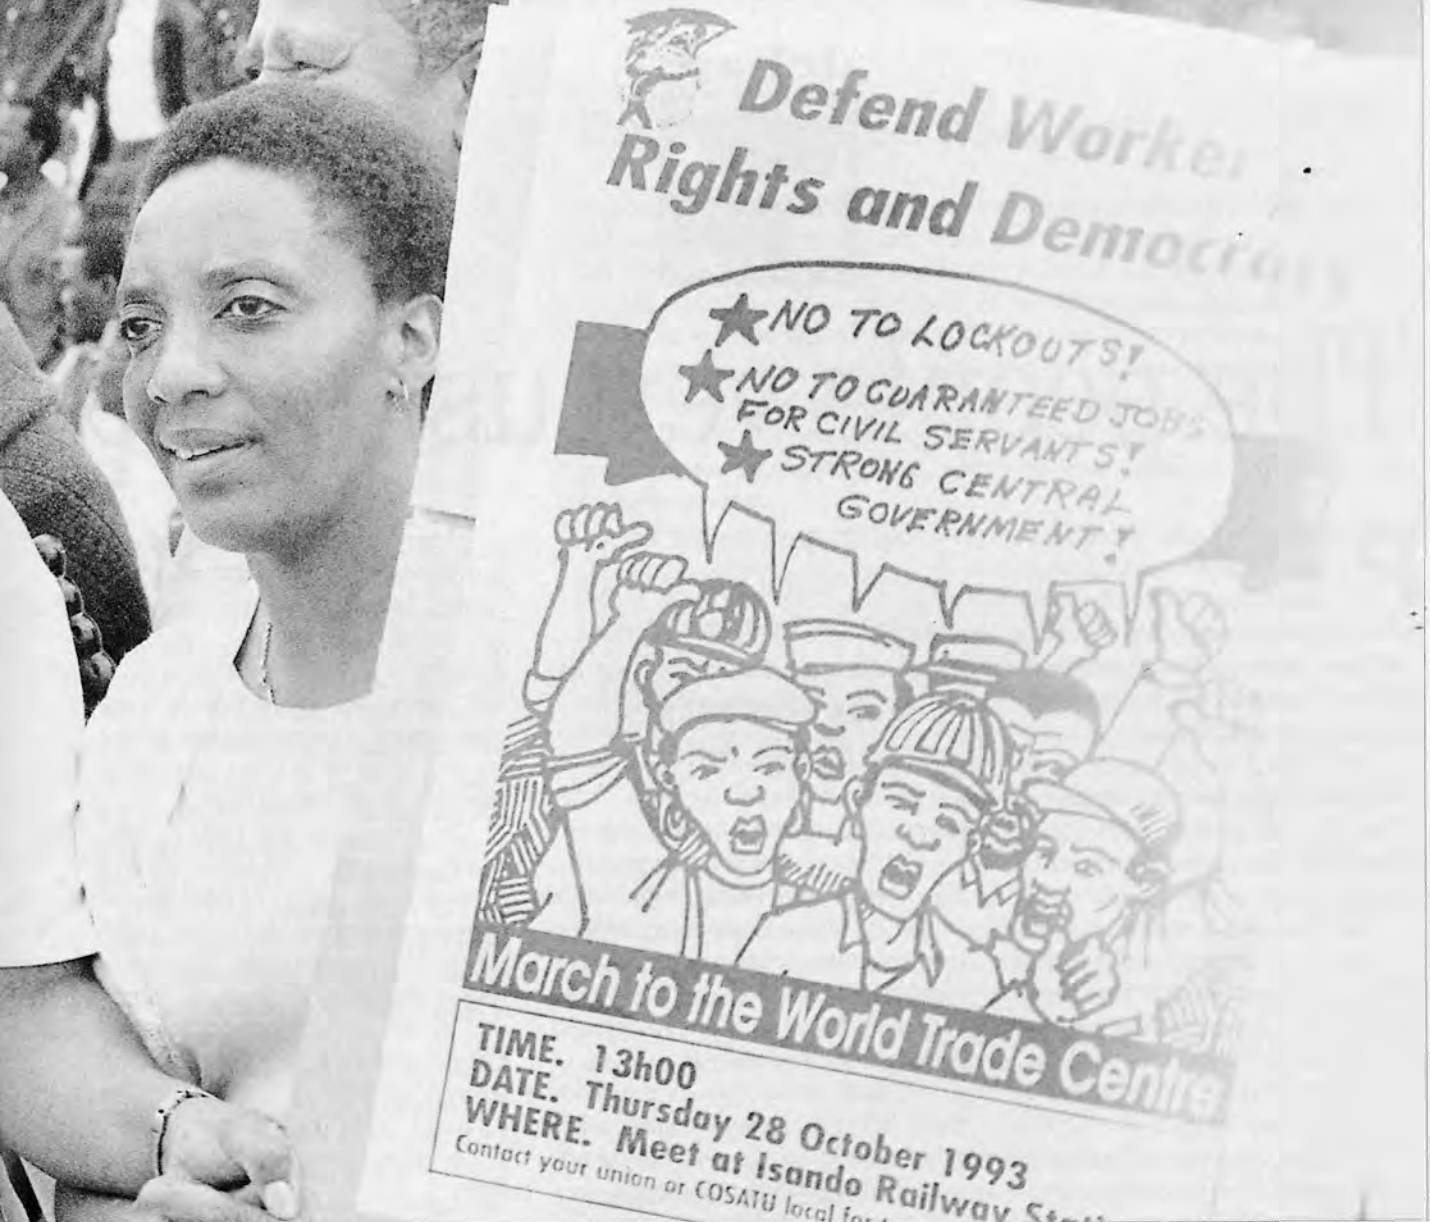 Defend Worker
Rights and Democracy
★ NO TO LOCKOUTS!
★ NO TO GUARANTEED JOBS
FOR CIVIL SERVANTS!
★ STRONG CENTRAL
GOVERNMENT!
March to the World Trade Centre
TIME. 13h00
DATE. Thursday 28 October 1993
WHERE. Meet at Isando Railway Stati
Contact your union or COSATU local for